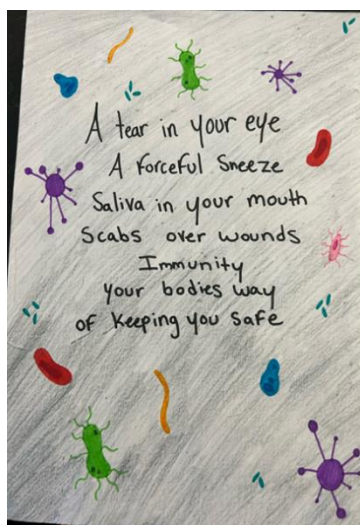 A tear in your eye
A Forceful Sneeze
Saliva in your mouth
Scabs over wounds
Immunity
your bodies way
of keeping you safe